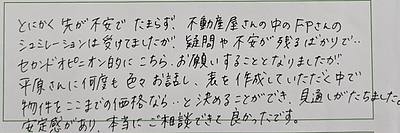 とにかく先が不安でたまらず、不動産屋さんの中のFPさんの
シュミレーションは受けてましたが、疑問や不安が残るばかりで‥
セカンドオピニオン的にこちらにお願いすることとなりましたが
平原さんに何度も色々お話し、表を作成していただく中で
物件をここまでの価格なら‥と決めることができ、見通しがたちました。
安定感があり、本当にご相談できて良かったです。